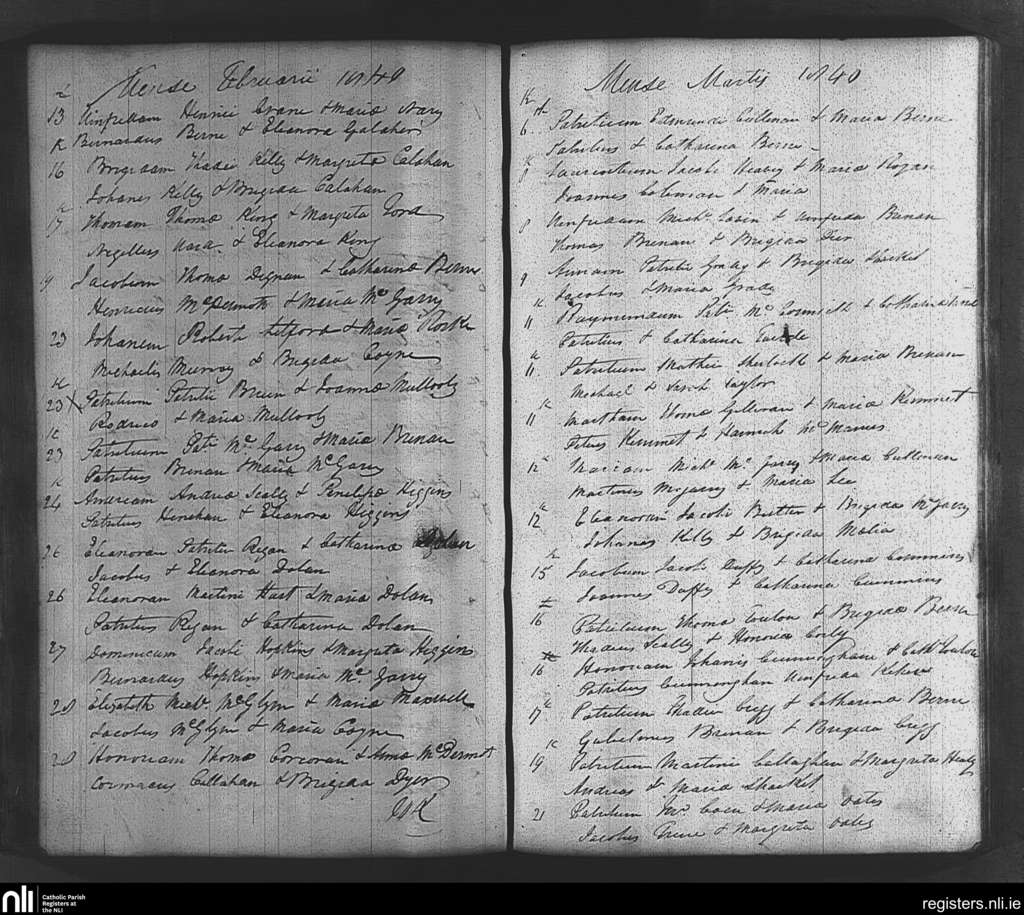 Mense Februarii 1840
13 Winfredam Henrici Crane & Maria Nary
K Bernardus Berne & Eleanora Galaher
16 Brigidam Thadei Kelly & Margreta Calahan
Johanes Kelly & Brigida Calahan
17 Thomam Thoma King & Margreta Ford
& Eleanora King
19 Jacobum Thoma Dignan & Catharina Berne
Henricus McDermott & Maria McGarry
23 Johanem Roberti & Maria Rorke
Michaelis Murray & Brigida Coyne
K
23 X Patritium Patritii & Joanna Mullooly
& Maria Mullooly
K
23 Patritium Pati McGarry & Maria Brenan
Patritius Brenan & Maria McGarry
K
24 Andrea Scally & Penelipe Higgins
Patritius & Eleanora Higgins
26 Eleanoram Patritii Regan & Catharina Dolan
Jacobus & Eleanora Dolan
26 Eleanoram Martini Hart & Maria Dolan
Patritius Regan & Catharina Dolan
27 Dominicum Jacobi Hopkins & Margreta Higgins
Bernardus Hopkins & Maria McGarry
28 Elizabeth Michl McGlynn & Maria Maxwell
Jacobus McGlynn & Maria Coyne
28 Honoriam Thoma Corcoran & Anna McDermot
Cormacus Callahan & Brigida Dyer
Mense Martis 1840
6 Patritium Edmundi Cullenan & Maria Berne
Patritius & Catharina Berne
K
8 Laurentium Jacobi Heavy & Maria Rogan
Joannes Coleman & Maria
8 Winfredam Michl & Winfreda Brenan
Thomas Brenan & Brigida
9 Annam Patritii & Brigida
Jacobus & Maria Grady
K
11 Raymundum Petri Mc & Catharina
Patritius & Catharina
K
11 Patritium Mathei Sherlock & Maria Brenan
Michael & Sarah Taylor
K
11 Martham Thoma Gillivan & Maria Kimmet
Petrus Kimmet & Hannah McManus
12 K Mariam Michl McGarry & Maria Cullenan
Martinus McGarry & Maria Lee
12 K Eleanoram Jacobi & Brigida McGarry
Johanes Kelly & Brigida Malia
K
15 Jacobum Jacobi Duffy & Catharina Cummins
Joannes Duffy & Catharina Cummins
16 Patritium Thoma & Brigida Berne
Thadeus Scally & Honoria
16 Honoriam Johanis Cuninghane & Cath
Patritius Cunninghan Winfreda
17 K Patritium Thadei Cregg & Catharina Berne
Brenan & Brigida Cregg
K
19 Patritium Martini Callaghan & Margreta Healy
Andreas & Maria
21 Patritium & Maria Oates
Jacobus & Margreta Oates
nli Catholic Parish
Registers at
the NLI
registers.nli.ie